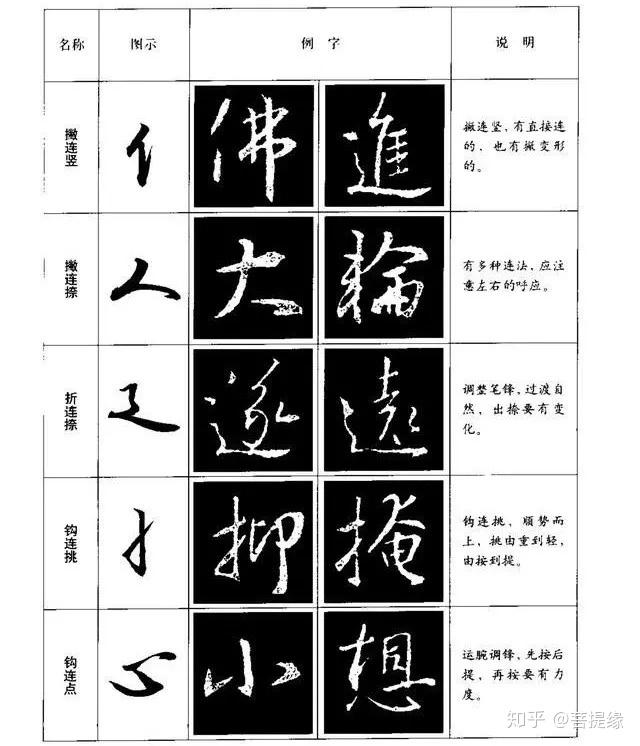 名称 图示 例字 说明
撇连竖 亻 佛 進 撇连竖，有直接连
的，也有撇变形
的。
撇连捺 人 大 輪 有多种连法，应注
意左右的呼应。
折连捺 辶 遂 遠 调整笔锋，过渡自
然，出捺要有变
化。
钩连挑 扌 抑 掩 钩连挑，顺势而
上，挑由重到轻，
由按到提。
钩连点 心 小 想 运腕调锋，先按后
提，再按要有力
度。
知乎 @菩提缘